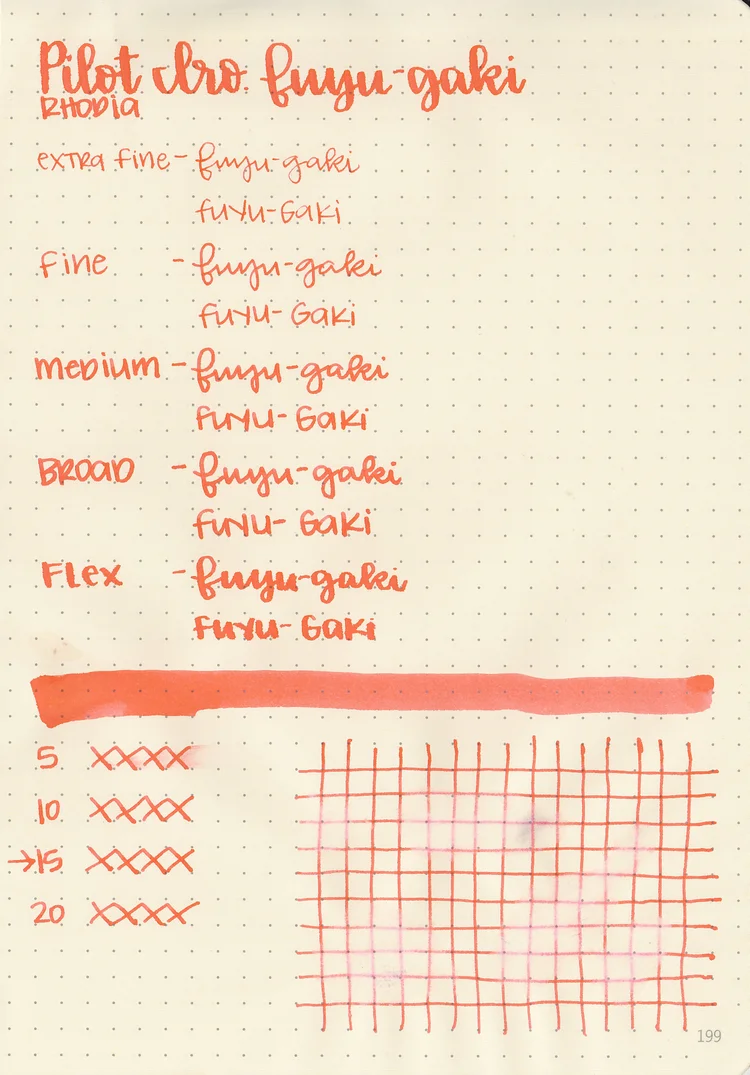 Pilot Iro fuyu-gaki
RHODIA
extra fine - fuyu-gaki
fuyu-Gaki
fine - fuyu-gaki
fuyu-Gaki
medium - fuyu-gaki
fuyu-Gaki
BROAD - fuyu-gaki
fuyu-Gaki
FLex - fuyu-gaki
fuyu-Gaki
5 XXXX
10 XXXX
→15 XXXX
20 XXXX
199